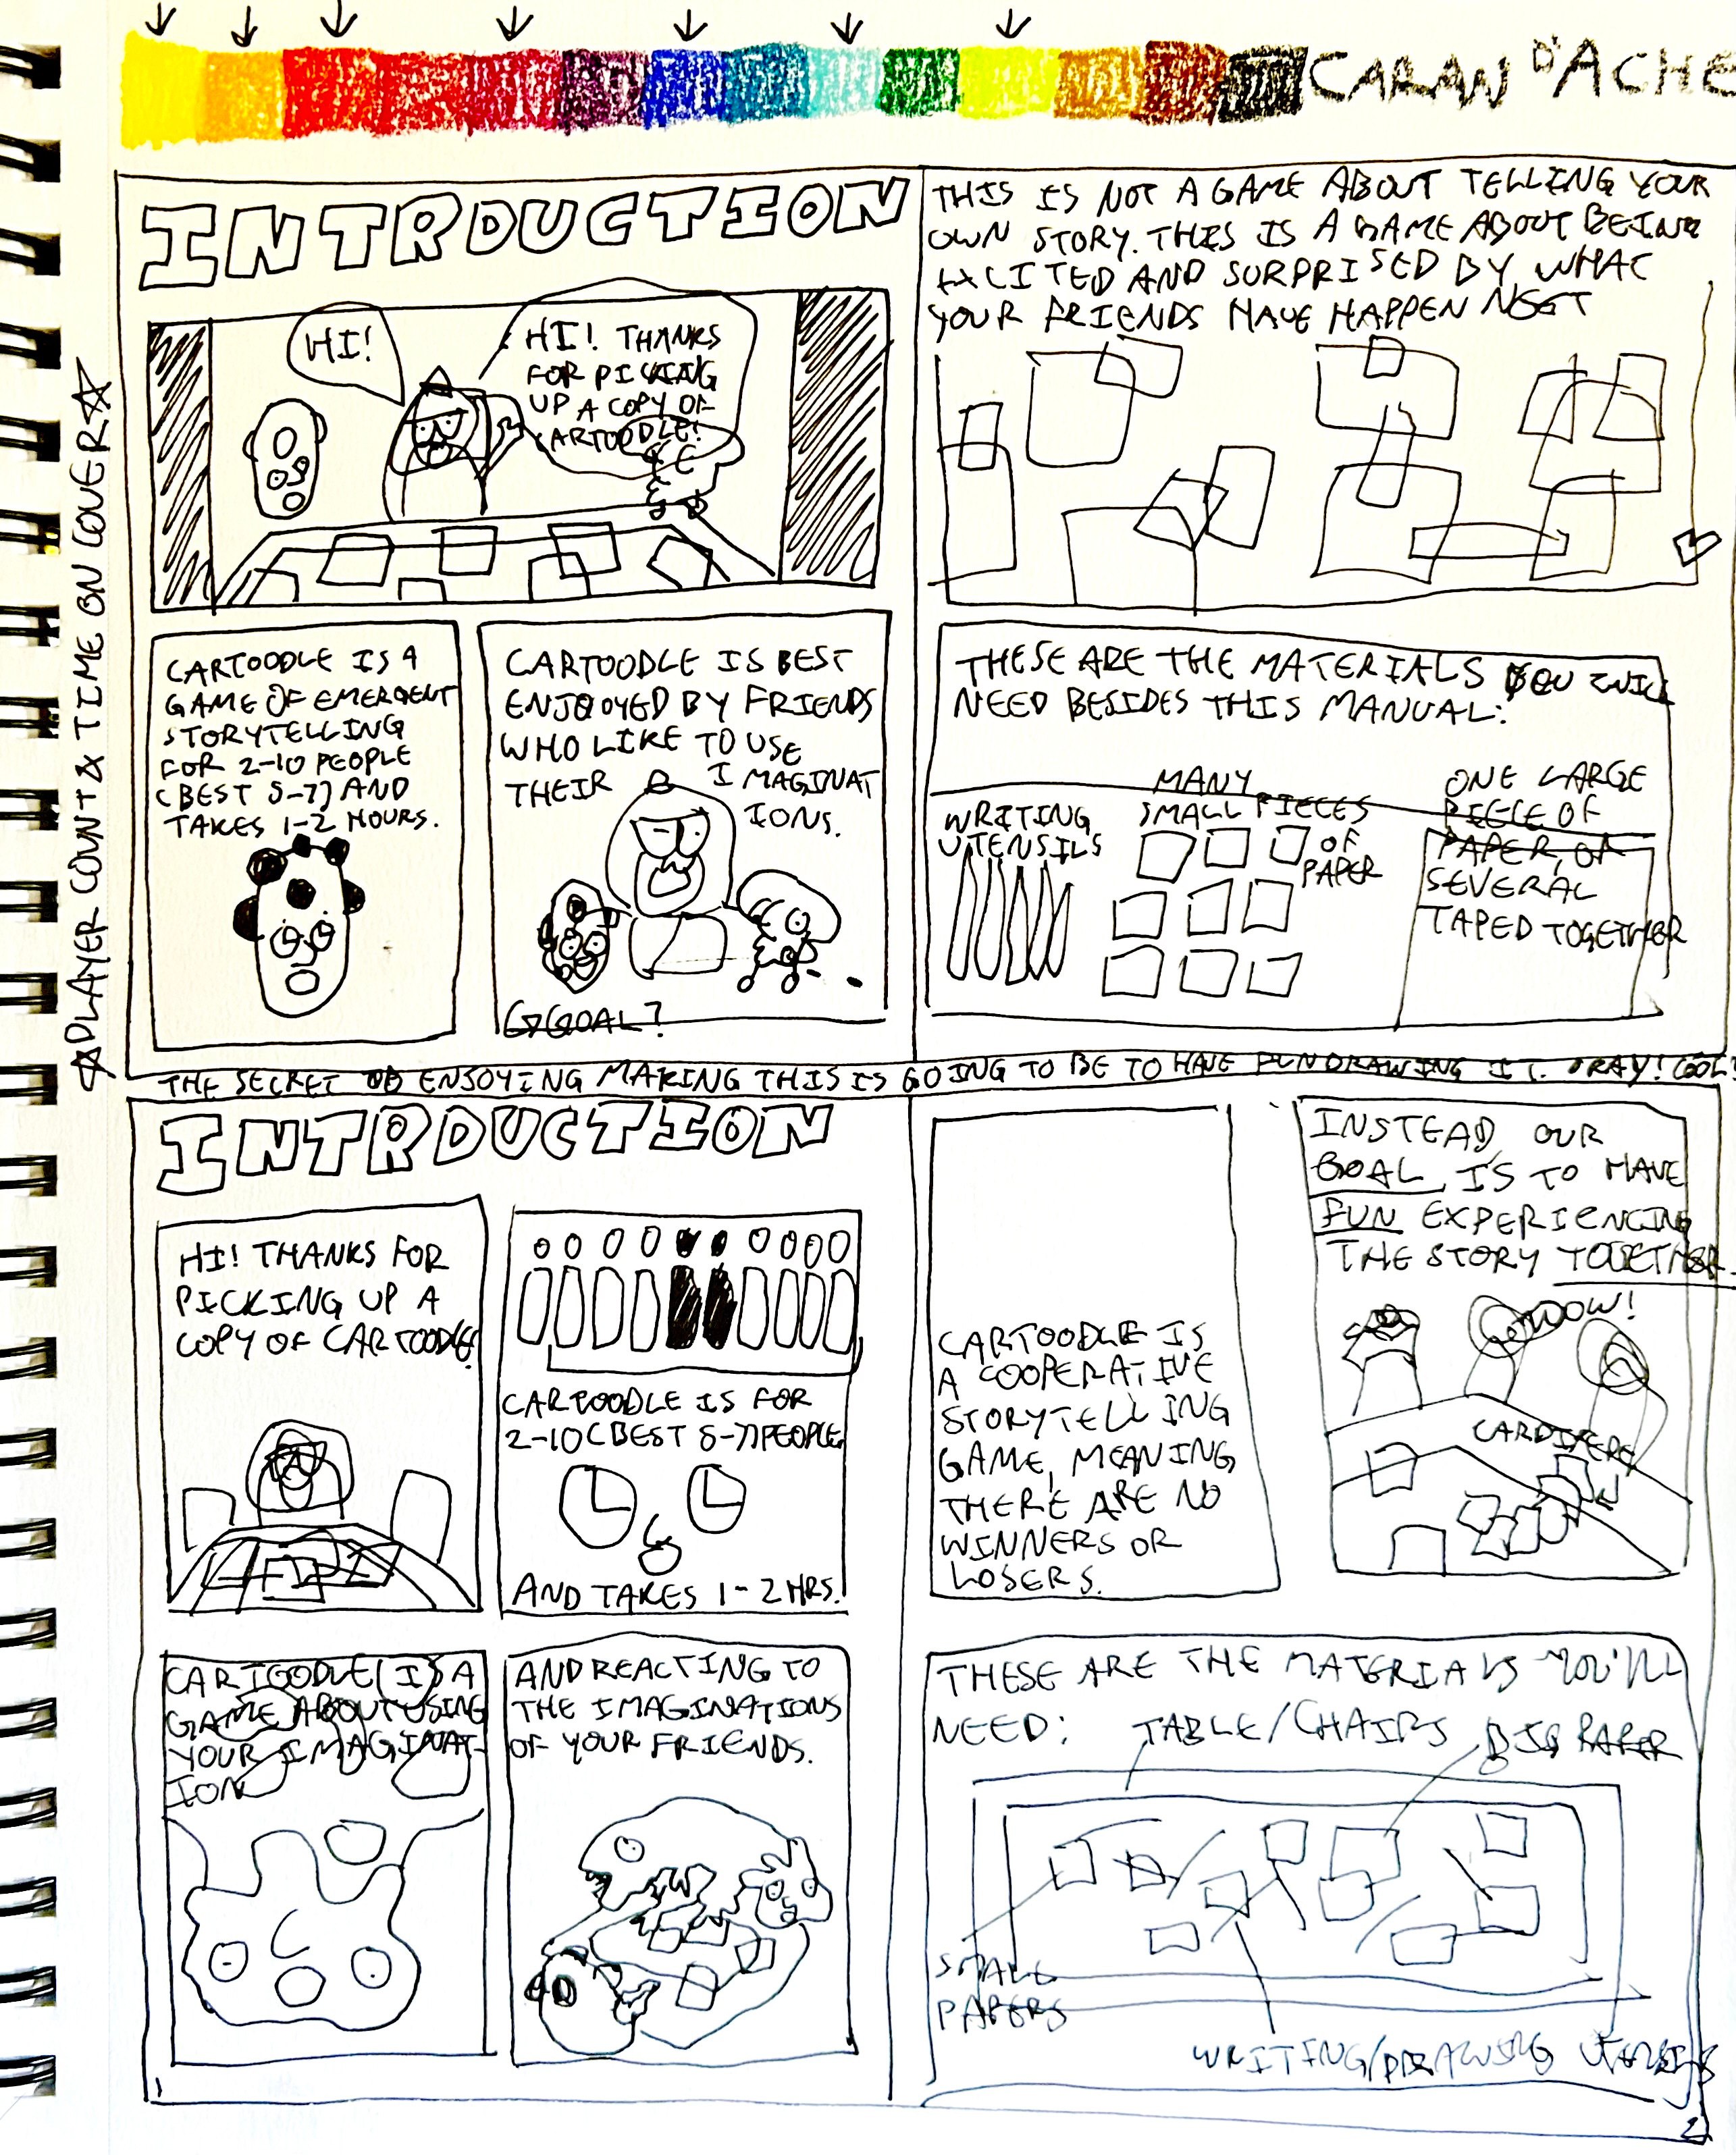 CARAN D'ACHE
☆PLAYER COUNT & TIME ON COVER☆
INTRDUCTION
HI!
HI! THANKS
FOR PICKING
UP A COPY OF
CARTOODLE!
CARTOODLE IS A
GAME OF EMERGENT
STORYTELLING
FOR 2-10 PEOPLE
(BEST 5-7) AND
TAKES 1-2 HOURS.
CARTOODLE IS BEST
ENJOYED BY FRIENDS
WHO LIKE TO USE
THEIR IMAGINAT
IONS.
GOAL?
THIS IS NOT A GAME ABOUT TELLING YOUR
OWN STORY. THIS IS A GAME ABOUT BEING
EXCITED AND SURPRISED BY WHAT
YOUR FRIENDS HAVE HAPPEN NEXT
THESE ARE THE MATERIALS YOU WILL
NEED BESIDES THIS MANUAL:
WRITING
UTENSILS
MANY
SMALL PIECES
OF
PAPER
ONE LARGE
PIECE OF
PAPER, OR
SEVERAL
TAPED TOGETHER
THE SECRET TO ENJOYING MAKING THIS IS GOING TO BE TO HAVE FUN DRAWING IT. OKAY! COOL!
INTRDUCTION
HI! THANKS FOR
PICKING UP A
COPY OF CARTOODLE!
CARTOODLE IS FOR
2-10 (BEST 5-7) PEOPLE
AND TAKES 1-2 HRS.
CARTOODLE IS A
GAME ABOUT USING
YOUR IMAGINAT-
ION
AND REACTING TO
THE IMAGINATIONS
OF YOUR FRIENDS.
1
CARTOODLE IS
A COOPERATIVE
STORYTELLING
GAME, MEANING
THERE ARE NO
WINNERS OR
LOSERS.
INSTEAD, OUR
GOAL IS TO HAVE
FUN EXPERIENCING
THE STORY TOGETHER.
WOW!
THESE ARE THE MATERIALS YOU'LL
NEED: TABLE/CHAIRS BIG PAPER
SMALL
PAPERS
WRITING/DRAWING UTENSILS
2